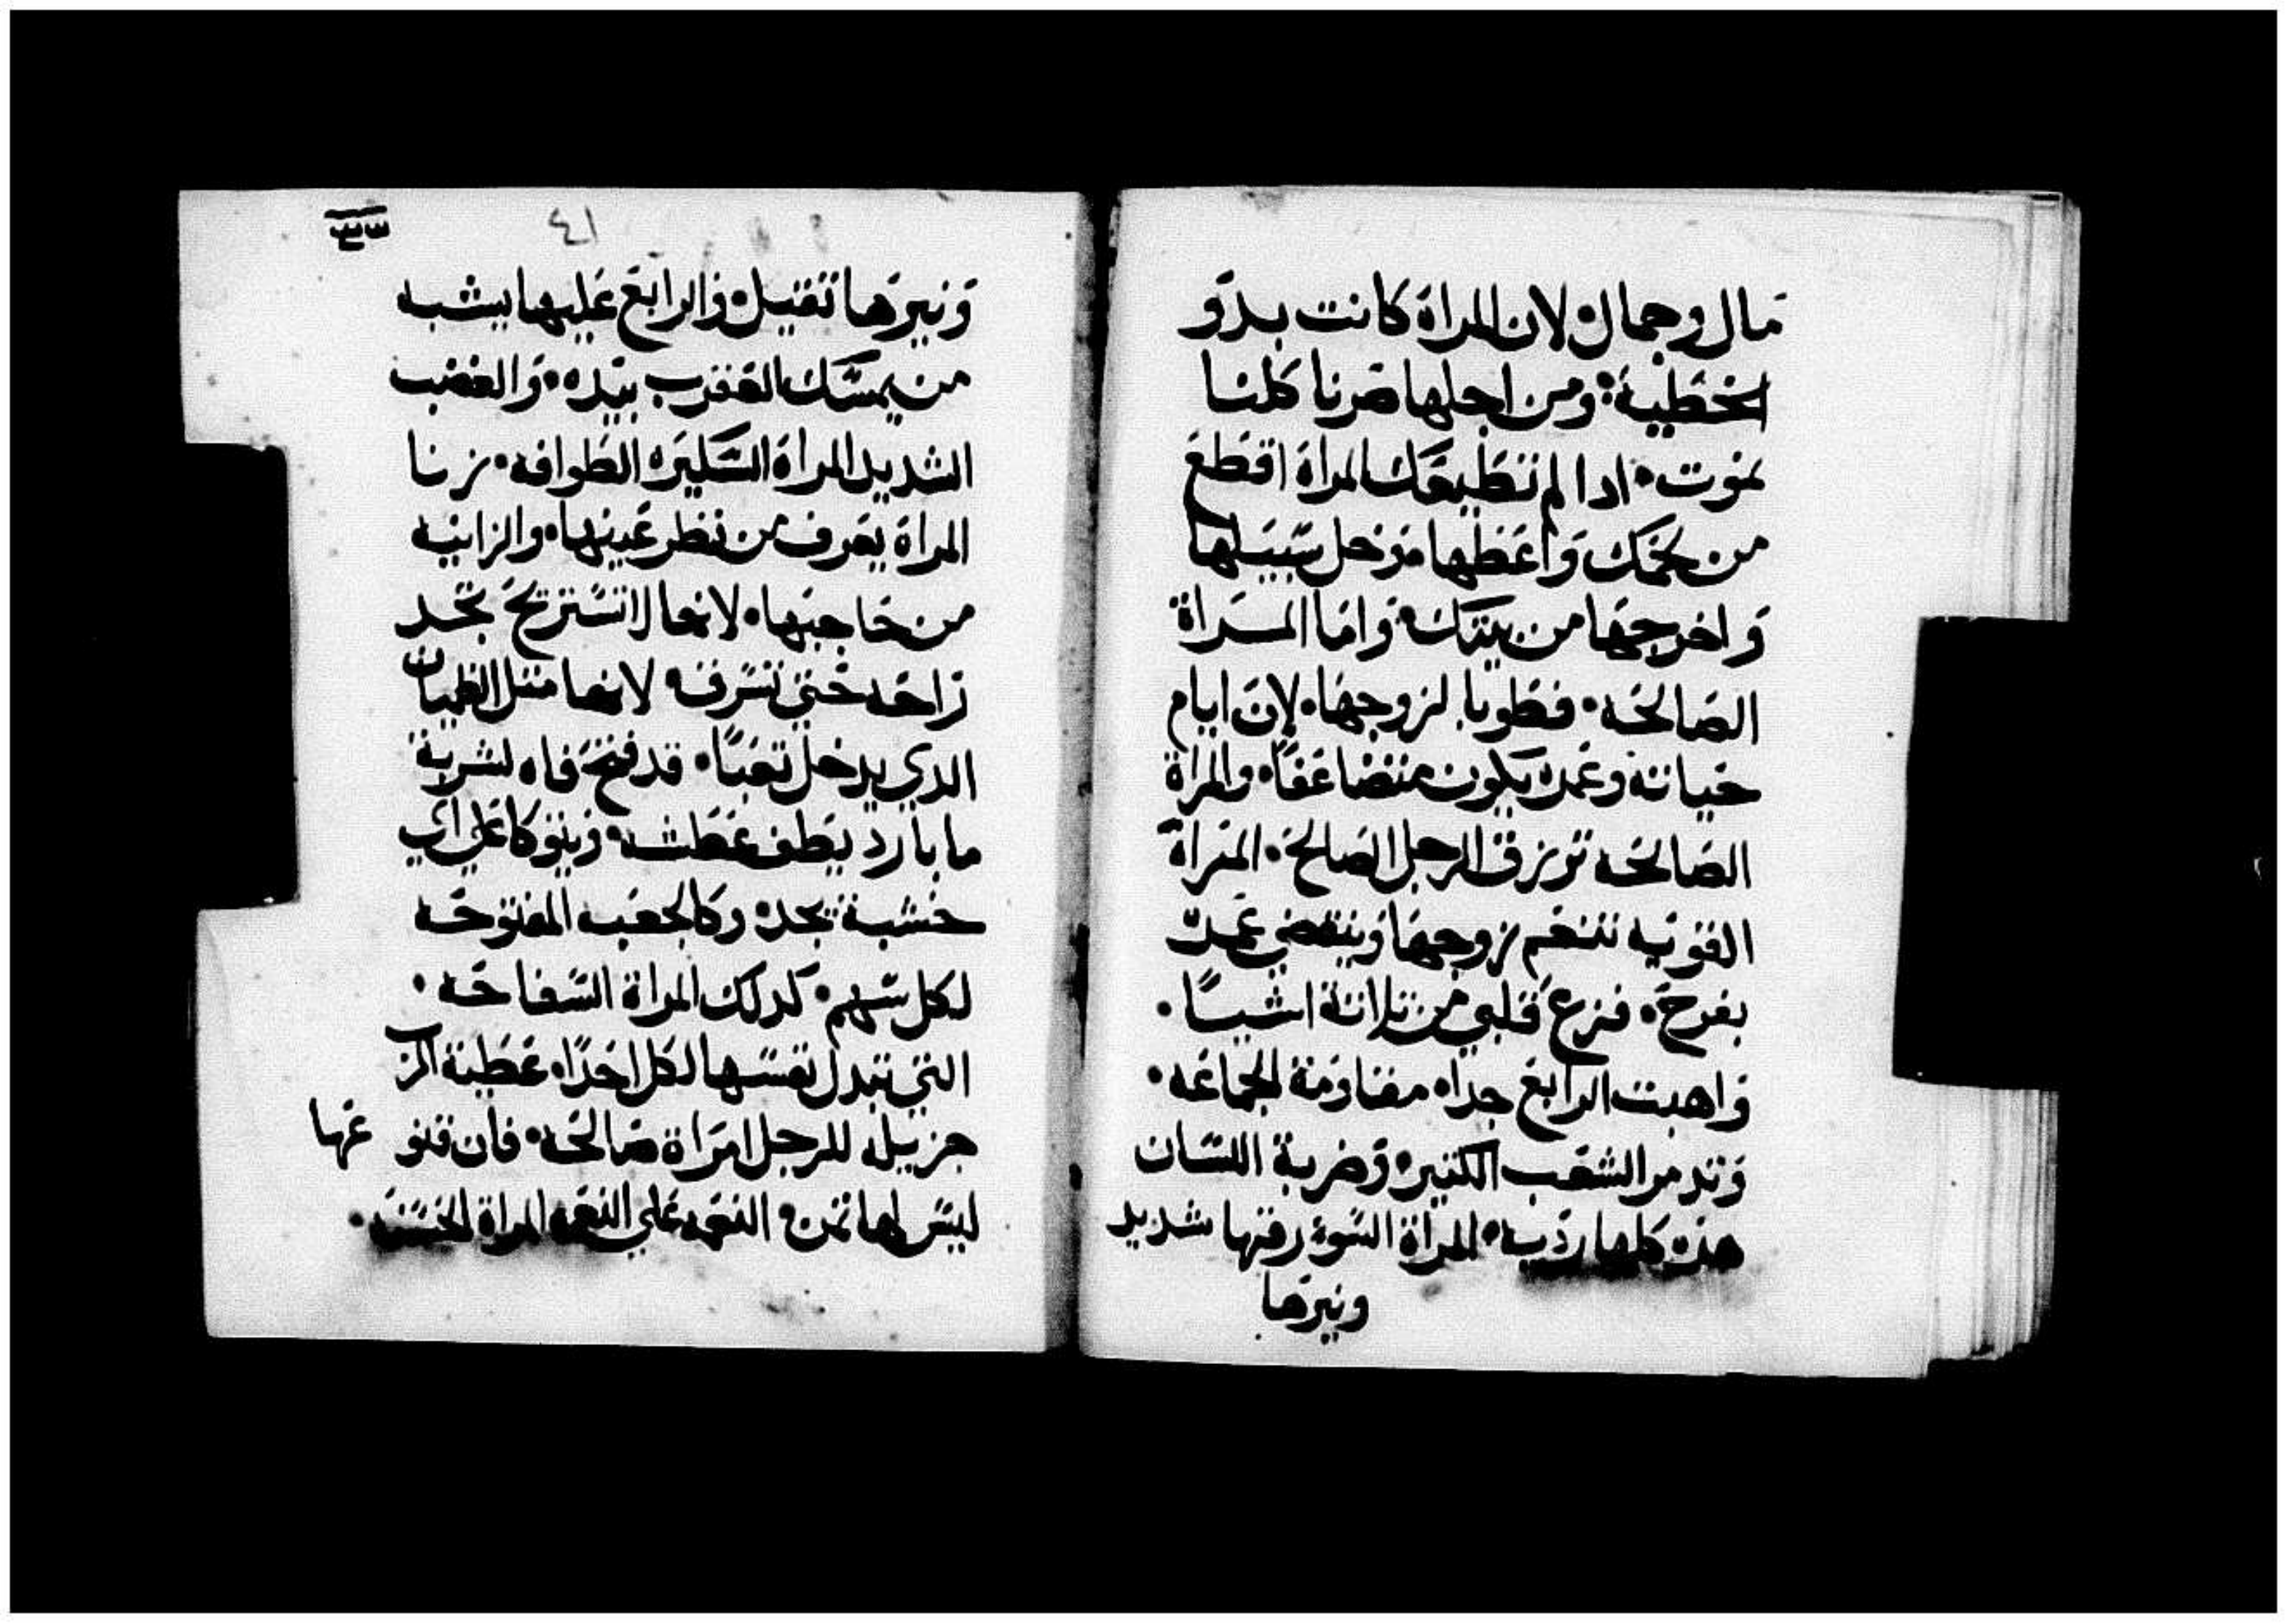 مال وجمال لان المراة كانت بدو
الخطيية ومن اجلها صرنا كلنا
نموت ادا لم تطيعك المراة اقطع
من لحمك واعطها وخل سبيلها
واخرجها من بيتك واما المراة
الصالحه فطوبا لزوجها لان ايام
حياته وعمره يكون متضاعفا والمراة
الصالحه ترزق الرجل الصالح المراة
القويه تنعم زوجها وينقضي عمره
بفرح فزع قلبي من تلاتة اشيا
واهبت الرابع جدا مقاومة الجماعه
وتدمر الشعب الكتير وضربة اللسان
هده كلها رديه المراة السوء رفقتها شديد
ونيرها
٤١
ونيرها تقيل والرابع عليها يشبه
من يمسك العقرب بيده والغضب
الشديد المراة السكيره الطوافه زنا
المراة يعرف من نظر عينها والزانيه
من حاجبها لانها لا تستريح تجد
راحه حتي تسرف لانها متل الظميان
الدي يدخل تعبا قد فتح فاه لشربة
ما بارد يطف عطشه ويتوكا علي اي
خشبة يجده وكالجعبه المفتوحه
لكل سهم كدلك المراة السفاحه
التي تبدل نفسها لكل احدا عطية الرب
جزيله للرجل امراة صالحه فان قنو عها
ليس لها تمن النعمه علي النعمه المراة الحسنه